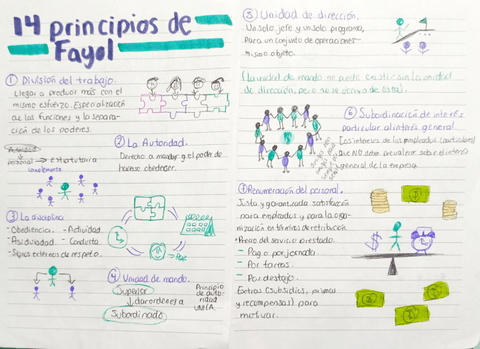 14 principios de
Fayol
① División del trabajo.
Llegar a producir más con el
mismo esfuerzo. Especialización
de las funciones y la separa-
ción de los poderes.
② La Autoridad.
Derecho a mandar y el poder de
hacerse obedecer.
Autoridad
personal → estatutaria
③ La disciplina
- Obediencia. - Actividad
- Asiduidad - Conducta
- Signos externos de respeto.
④ Unidad de mando.
Superior
↓ dar ordenes a
Subordinado
Principio
de auto-
ridad
ÚNICA.
⑤ Unidad de dirección.
Un solo jefe y un solo programa,
Para un conjunto de operaciones
mismo objeto.
(La unidad de mando no puede existir sin la unidad
de dirección, pero no se deriva de ésta).
⑥ Subordinación de interés
particular al interés general
Los intereses de los empleados
que NO debe prevalecer sobre el interés
general de la empresa.
⑦ Remuneración del personal.
Justa y garantizada satisfacción
para empleados y para la orga-
nización en términos de retribución.
servicio prestado.
- Pago por jornada
- Por tareas.
- Por destajo.
Extras (subsidios, primas
y recompensas) para
motivar.